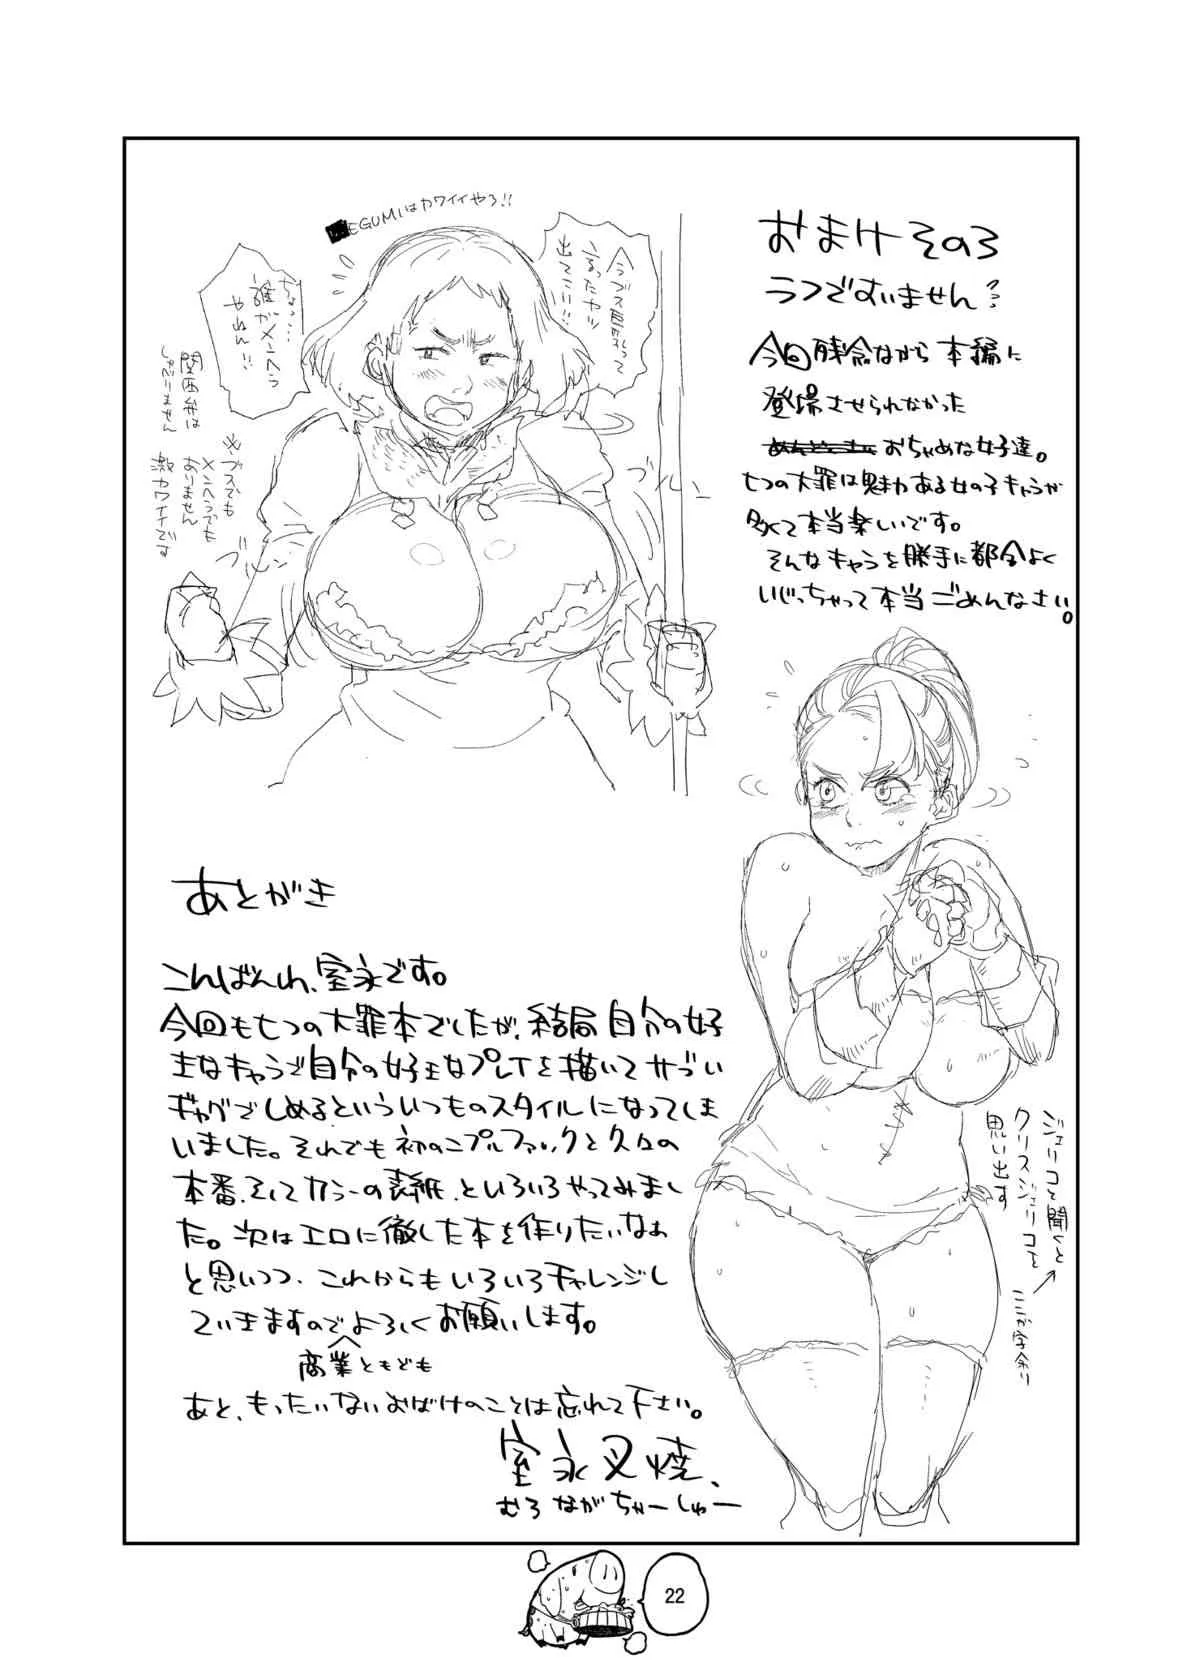 おまけその3
ラフですいません?
今回残念ながら本編に
登場させられなかった
おちゃめな女子達。
七つの大罪は魅力ある女の子キャラが
多くて本当楽しいです。
そんなキャラを勝手に都合よく
いじっちゃって本当ごめんなさい。
EGUMIはカワイイやろ!!
今ブス巨乳って
言ったヤツ
出てこい!!
ちょっ…
誰がメンヘラ
やねん!!
関西弁は
しゃべりません
※ブスでも
メンヘラでも
ありません
激カワイイです
ジェリコと聞くと
クリスジェリコを
思い出す
ここが字余り
あとがき
こんばんわ、室永です。
今回も七つの大罪本でしたが、結局自分の好
きなキャラで自分の好きなプレイを描いてサブい
ギャグでしめるといういつものスタイルになってしま
いました。それでも初のニプルファックと久々の
本番、そしてカラーの表紙、といろいろやってみまし
た。次はエロに徹した本を作りたいなぁ
と思いつつ、これからもいろいろチャレンジし
ていきますのでよろしくお願いします。
商業ともども
あと、もったいないおばけのことは忘れて下さい。
室永叉焼、
むろながちゃーしゅー
22